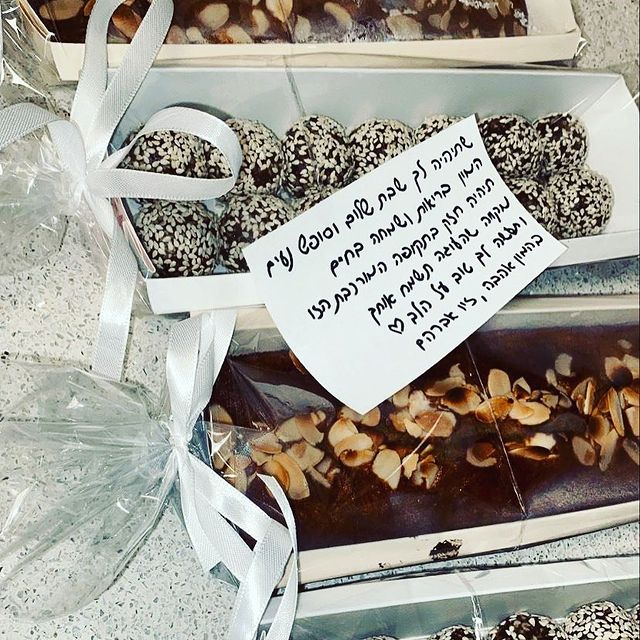 שתיהיה לך שבת שלום וסופש נעים
המון בריאות ושמחה בחיים
תיהיה חזק בתקופה המורכבת הזו
מקווה שהעוגה תשמח אותך
ותעשה לך טוב על הלב ♡
בהמון אהבה, זיו אברהם